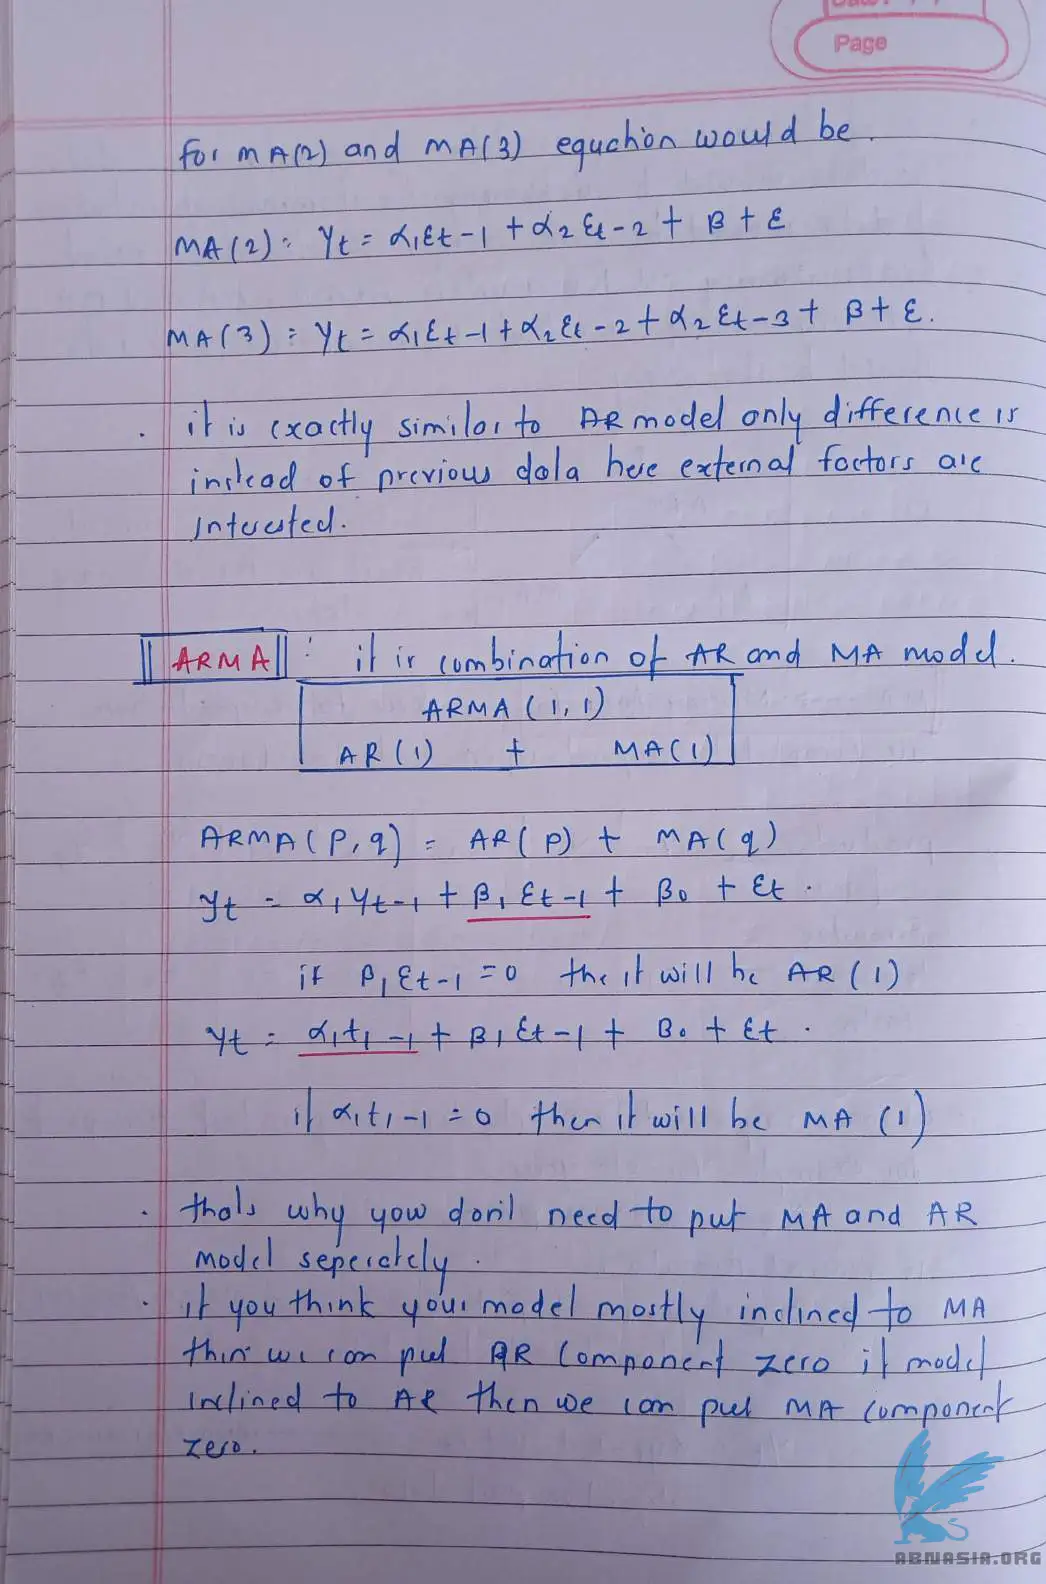 Date: / /
Page
for MA(2) and MA(3) equation would be.
MA(2): Yt = α1εt-1 + α2 εt-2 + β + ε
MA(3): Yt = α1εt-1 + α2εt-2 + α2 εt-3 + β + ε.
. it is exactly similar to AR model only difference is
instead of previous data here external factors are
Interested.
ARMA : it is combination of AR and MA model.
ARMA (1,1)
AR(1) + MA(1)
ARMA(P,q) = AR(P) + MA(q)
yt = α1 Yt-1 + β1 εt-1 + β0 + εt .
if β1 εt-1 = 0 the it will be AR(1)
yt = α1t1-1 + β1 εt-1 + β0 + εt .
if α1t1-1 = 0 then it will be MA (1)
. thats why you don't need to put MA and AR
model seperately .
. if you think your model mostly inclined to MA
then we can put AR component zero if model
inclined to AR then we can put MA component
zero.
ABNASIA.ORG